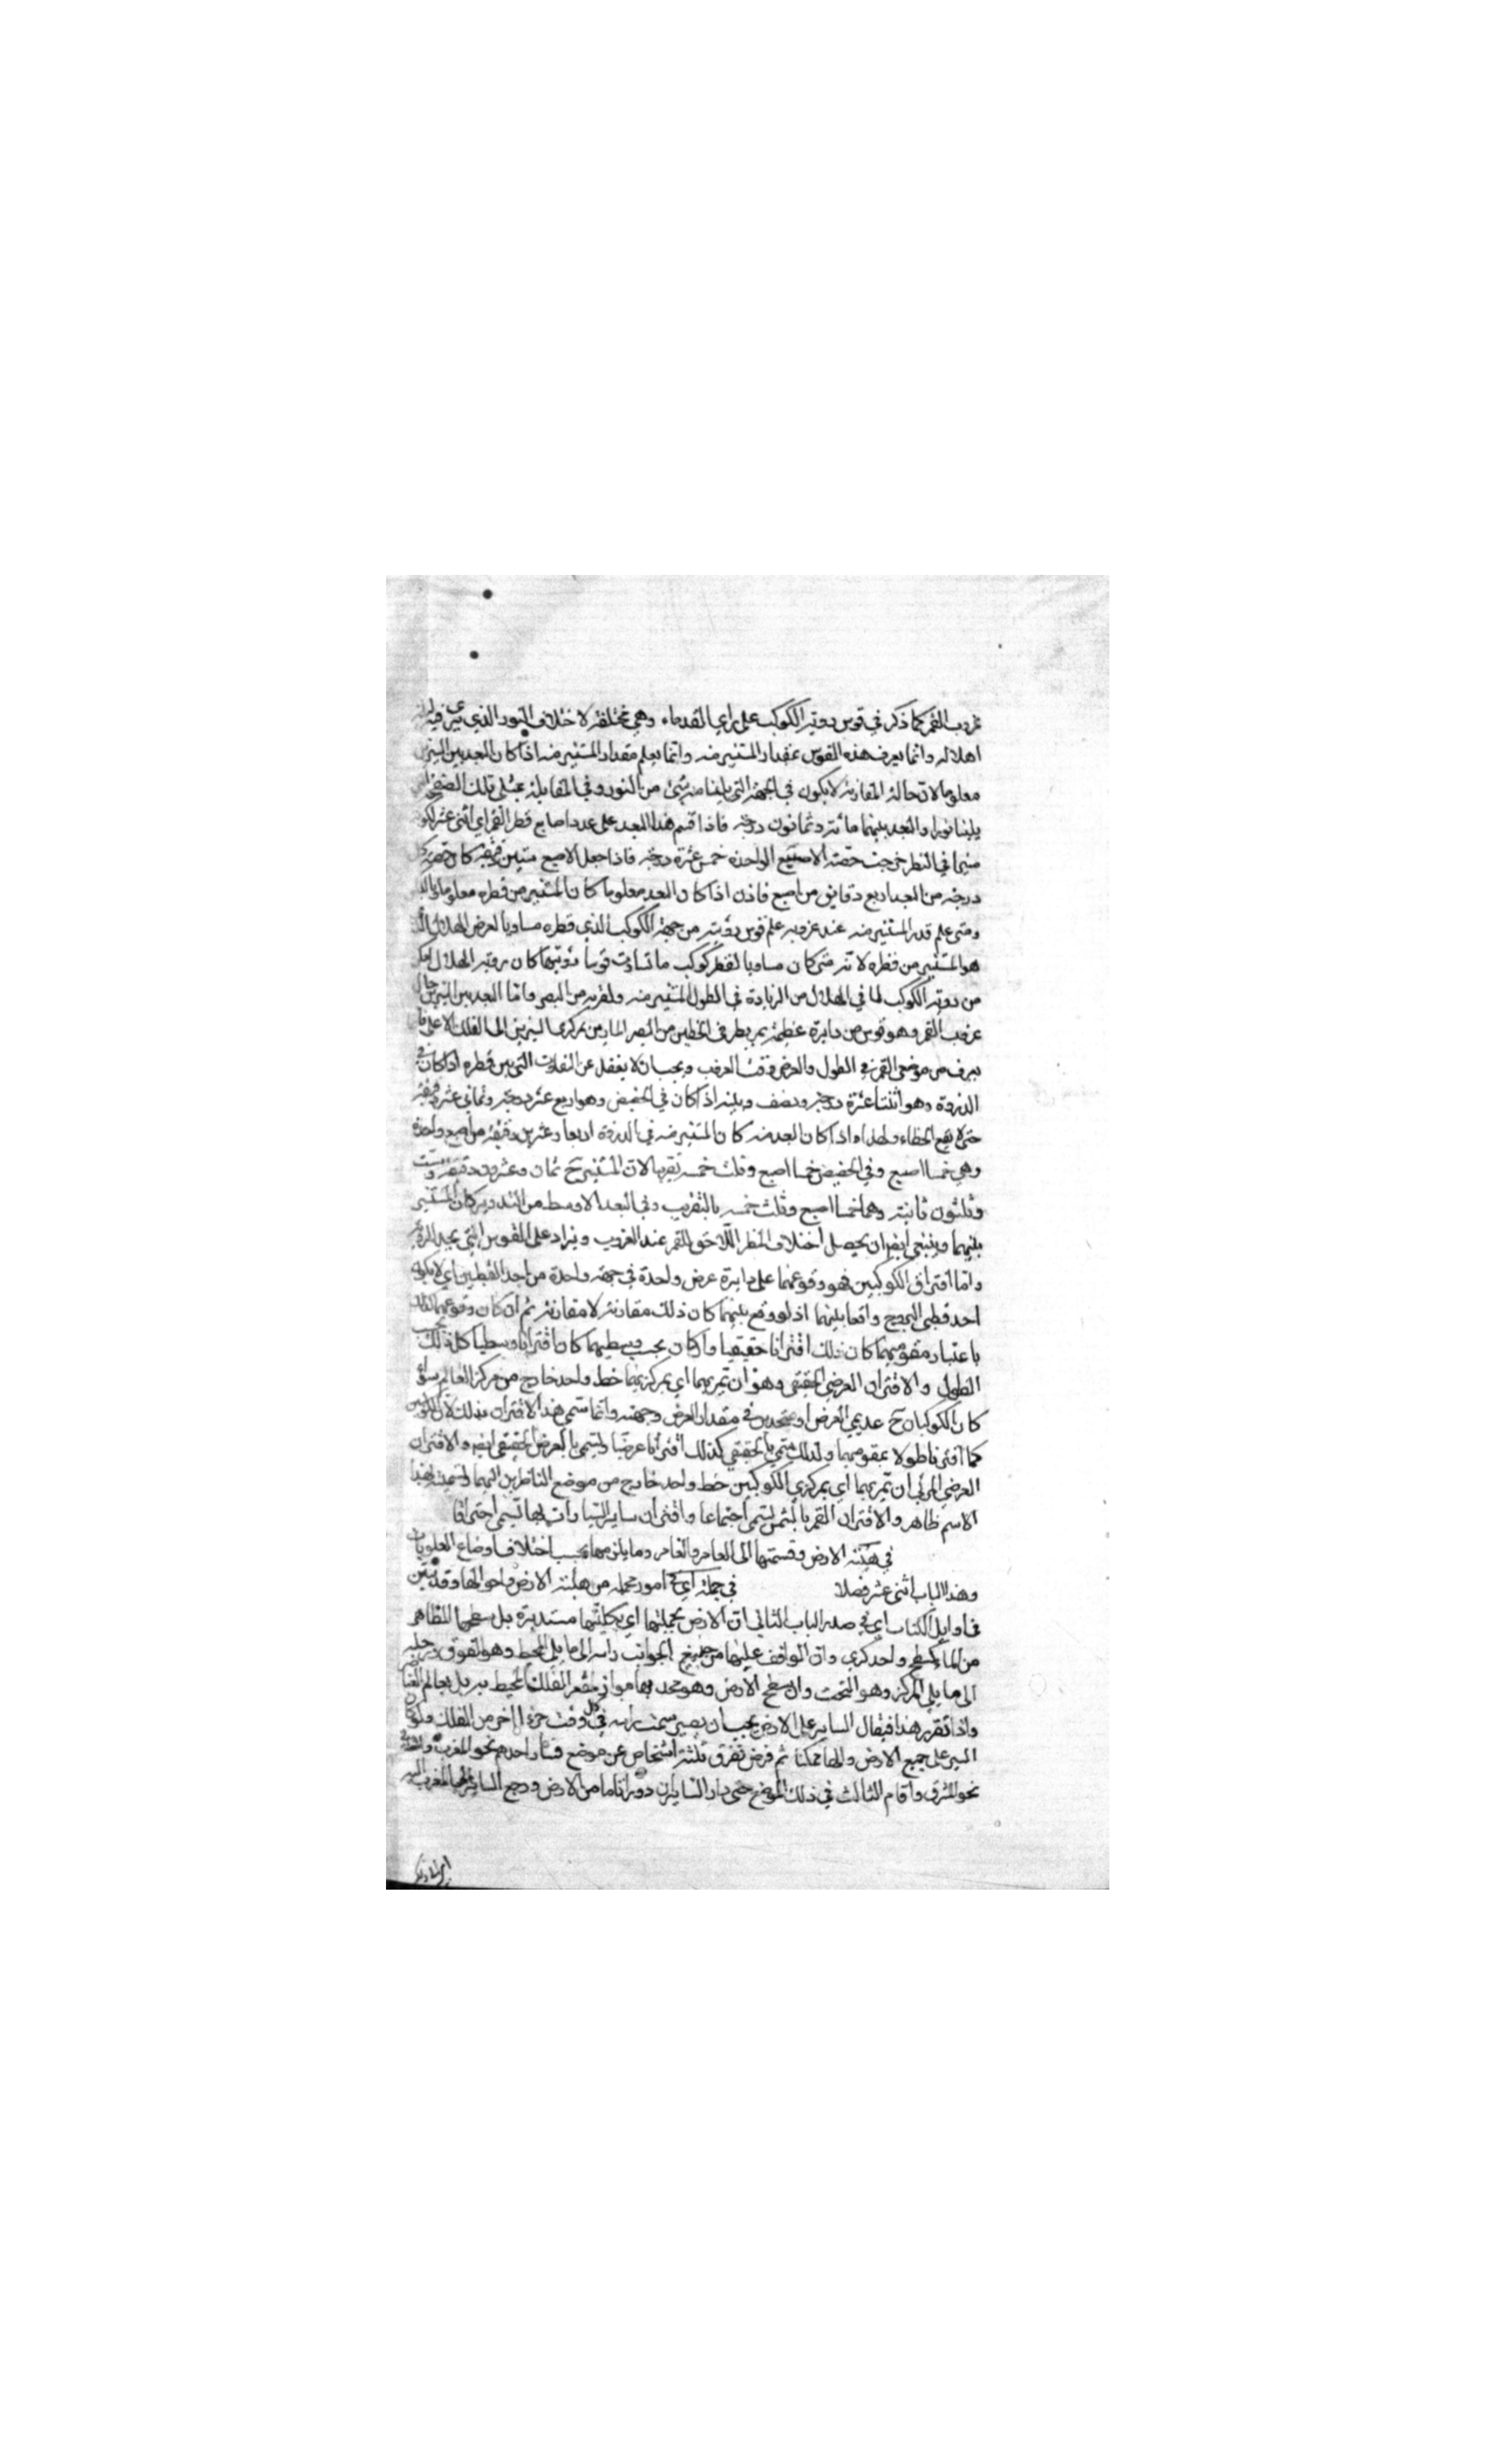 غروب القمر كما ذكر في قوس روية الكوكب على راي القدماء وهي مختلفة لاختلاف النور الذي يرى فيه
اهلاله وانما يعرف هذه القوس بمقدار المستنير منه وانما يعلم مقدار المستنير منه اذا كان البعد بين النيرين
معلوما لان حالة المقارنة لا يكون في الجهة التي يلينا منه شئ من النور وفي المقابلة يمتلى تلك الصفحة
يلينا نورا والبعد بينهما مائة وثمانون درجة فاذا قسم هذا البعد على عدد اصابع قطر القمر اي اثنى عشر
منها في النظر خرجت حصة الاصبع الواحدة خمس عشرة درجة فاذا جعل الاصبع ستين دقيقة كان حصة كل
درجة من البعد اربع دقايق من اصبع فاذن اذا كان البعد معلوما كان المستنير من قطره معلوما
ومتى علم قدر المستنير منه عند غروبه علم قوس رؤيته من جهة الكوكب الذي قطره مساويا لعرض الهلال
هو المستنير من قطره لانه متى كان مساويا لقطر كوكب ما تساوت قوسا رؤيتهما كان روية الهلال
من روية الكوكب لما في الهلال من الزيادة في الطول المستنير منه ولقربه من البصر واما البعد بين النيرين حال
غروب القمر وهو قوس من دايرة عظيمة يمر بطرفي الخطين من البصر المارين بمركزي النيرين الى الفلك الاعلى
يعرف من موضعي القمر في الطول والعرض وقت الغروب ويجب ان لا يغفل عن التفاوت التي بين قطره اذا كان في
الذروة وهو اثنتا عشرة درجة ونصف وبينه اذا كان في الحضيض وهو اربع عشر درجة وثماني عشر دقيقة
حتى لا يقع الخطاء ولهذا اذا كان البعد منه كان المستنير منه في الذروة اربعا وعشرين دقيقة من اصبع واحدة
وهي خمسا اصبع وفي الحضيض خمسا اصبع وثلث خمسه تقريبا لان المستنير ح ثمان وعشرون دقيقة وست
وثلثون ثانية وهما خمسا اصبع وثلث خمسه بالتقريب وفي البعد الاوسط من التدوير كان المستنير
بينهما وينبغي ايضا ان يحصل اختلاف المنظر اللاحق للقمر عند الغروب ويزاد على القوس التي يجد الروية
واما اقتران الكوكبين فهو وقوعهما على دايرة عرض واحدة في جهة واحدة من احد القطبين اي لا يكون
احد قطبي البروج واقعا بينهما اذ لو وقع بينهما كان ذلك مقابلة لا مقارنة ثم ان كان وقوعهما
باعتبار مقوميهما كان ذلك اقترانا حقيقيا وان كان بحسب وسطيهما كان اقترانا وسطيا كل ذلك بحسب
الطول والاقتران العرضي الحقيقي وهو ان يمر بهما اي بمركزيهما خط واحد خارج من مركز العالم سواء
كان الكوكبان ح عديمي العرض او متحدين في مقدار العرض وجهته وانما سمي هذا الاقتران بذلك لان الكوكبين
كما اقترنا طولا بمقوميهما ولذلك سمي بالحقيقي كذلك اقترنا عرضا وليسمى بالعرض الحقيقي ايضا والاقتران
العرضي المرئي ان يمر بهما اي بمركزي الكوكبين خط واحد خارج من موضع الناظر اليهما وتسميته بهذا
الاسم ظاهر والاقتران القمر بالشمس يسمى اجتماعا واقتران ساير السيارات بها يسمى احتراقا
في هيئة الارض وقسمتها الى العامر والغامر وما يلزمها بحسب اختلاف اوضاع العلويات
وهذا الباب اثنى عشر فصلا في جملة اي في امور مجملة من هيئة الارض واحوالها وقد تبين
في اوايل الكتاب اي في صدر الباب الثاني ان الارض بجملتها اي بكليتها مستديرة بل سطحها الظاهر
من الماء كسطح واحد كري وان الواقف عليها من جميع الجوانب راسه الى ما يلي المحيط وهو الفوق ورجليه
الى ما يلي المركز وهو التحت وان سطح الارض وهو محدبها مواز لمقعر الفلك المحيط به بل بعالم
واذا تقرر هذا فيقال الساير على الارض يجب ان يصير سمت راسه في كل وقت جزءا اخر من الفلك ولو كان
السير على جميع الارض والماء ممكنا ثم فرض تفرق ثلثة اشخاص عن موضع فسار احدهم نحو المغرب والثاني
نحو المشرق واقام الثالث في ذلك الموضع حتى دار السايران دورا تاما من الارض ورجع الساير الى المغرب اليه